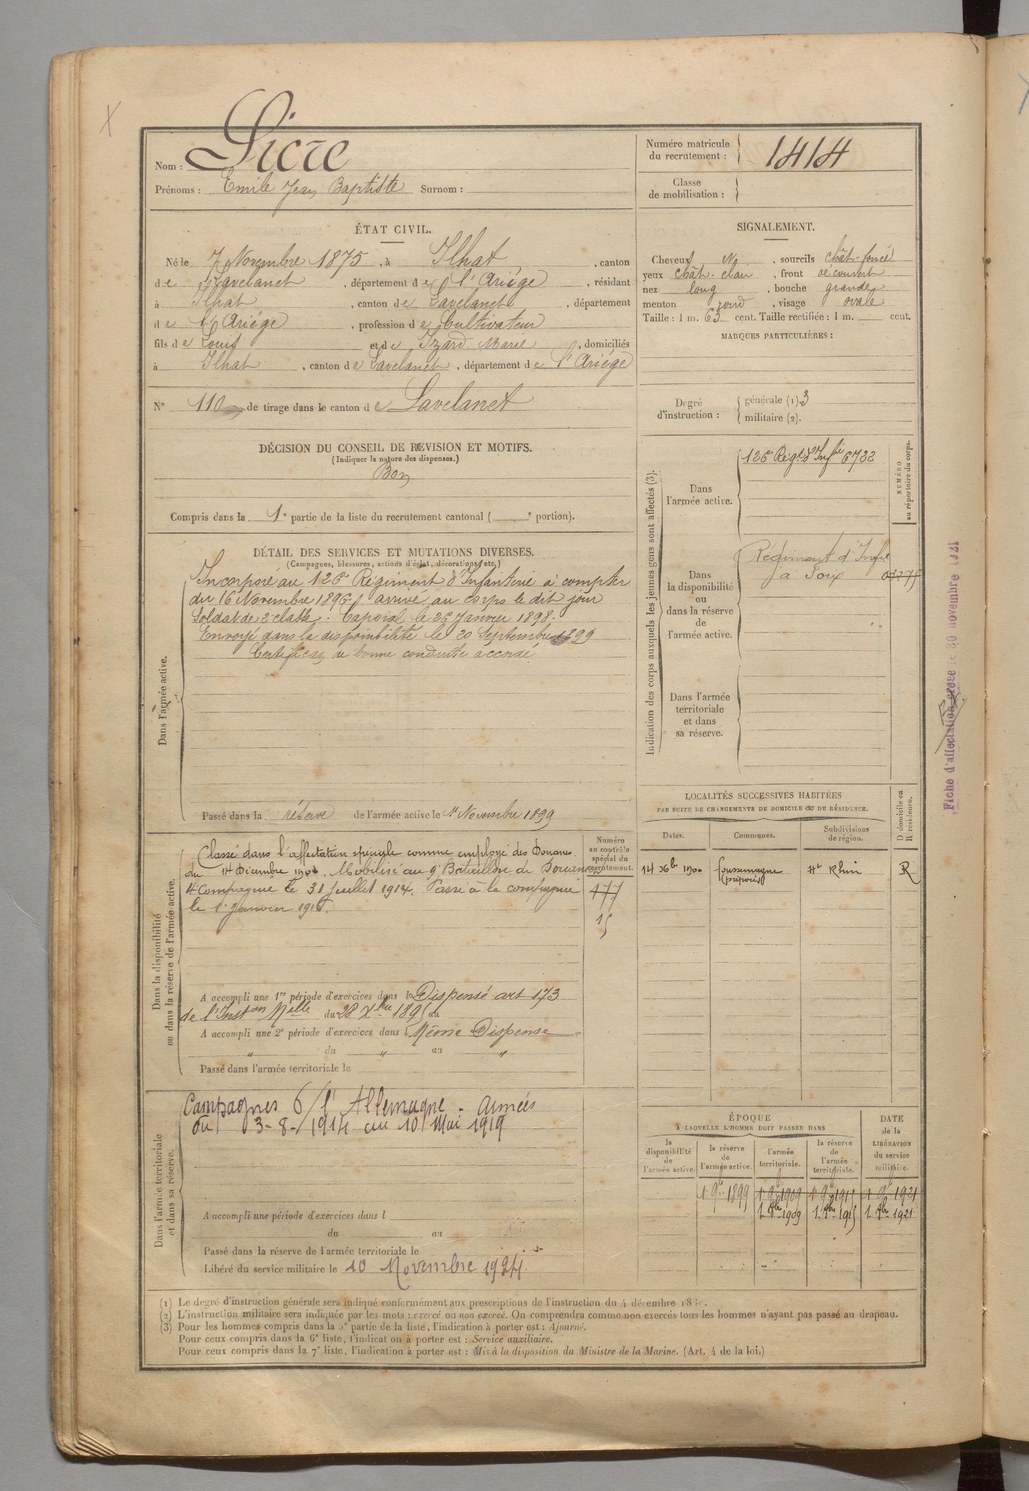 Nom : Sicre
Prénoms : Emile Jean Baptiste Surnom :
Numéro matricule du recrutement : 1414
Classe de mobilisation :
ÉTAT CIVIL.
Né le 7 Novembre 1875, à Ilhat, canton
de Lavelanet, département de l'Ariège, résidant
à Ilhat, canton de Lavelanet, département
de l'Ariège, profession de Cultivateur
fils de Louis et de Izard Marie, domiciliés
à Ilhat, canton de Lavelanet, département de l'Ariège
N° 110 de tirage dans le canton de Lavelanet
SIGNALEMENT.
Cheveux N, sourcils chât-foncé
yeux chât-clair, front découvert
nez long, bouche grande
menton rond, visage ovale
Taille : 1 m. 63 cent. Taille rectifiée : 1 m. cent.
MARQUES PARTICULIÈRES :
Degré d'instruction : générale (1) 3
militaire (2).
DÉCISION DU CONSEIL DE REVISION ET MOTIFS.
(Indiquer la nature des dispenses.)
Bon
Compris dans la 1e partie de la liste du recrutement cantonal ( e portion).
DÉTAIL DES SERVICES ET MUTATIONS DIVERSES.
(Campagnes, blessures, actions d'éclat, décorations, etc.)
Dans l'armée active.
Incorporé au 126e Régiment d'Infanterie à compter
du 16 Novembre 1896, arrivé au corps le dit jour
Soldat de 2e classe. Caporal le 25 Janvier 1898.
Envoyé dans la disponibilité le 20 Septembre 1899
Certificat de bonne conduite accordé
Passé dans la réserve de l'armée active le 1er Novembre 1899
Indication des corps auxquels les jeunes gens sont affectés (3).
NUMÉRO au répertoire du corps.
Dans l'armée active.
126e Régt d'Infie 6722
Dans la disponibilité ou dans la réserve de l'armée active.
Régiment d'Infie
à Foix
Dans l'armée territoriale et dans sa réserve.
Fiche d'affectation créée le 30 novembre 1921
LOCALITÉS SUCCESSIVES HABITÉES
PAR SUITE DE CHANGEMENTS DE DOMICILE OU DE RÉSIDENCE.
Dates. Communes. Subdivisions de région. D domicile ou R résidence.
14 Xbre 1900 Foussemagne (préposé) Ht Rhin R
Dans la disponibilité ou dans la réserve de l'armée active.
Numéro au contrôle spécial du recrutement.
Classé dans l'affectation spéciale comme employé des Douanes
du 14 Décembre 1900. Mobilisé au 9e Bataillon de Douaniers
4e Compagnie le 31 Juillet 1914. Passé à la compagnie
le 1er janvier
477
15
A accompli une 1re période d'exercices dans le Dispensé art 173
de l'Inston Melle du 28 Xbre 1895 au
A accompli une 2e période d'exercices dans l Même Dispense
" du " au "
Passé dans l'armée territoriale le
Dans l'armée territoriale et dans sa réserve.
Campagnes c/ l'Allemagne - armées
du 3-8-1914 au 10 Mai 1919
A accompli une période d'exercices dans l
du au
Passé dans la réserve de l'armée territoriale le
Libéré du service militaire le 10 Novembre 1924
ÉPOQUE
À LAQUELLE L'HOMME DOIT PASSER DANS
DATE de la LIBÉRATION du service militaire.
la disponibilité de l'armée active. la réserve de l'armée active. l'armée territoriale. la réserve de l'armée territoriale.
1 9bre 1899 1 9bre 1909 1 9bre 1915 1 9bre 1921
1 9bre 1909 1 9bre 1915 1 9bre 1921
(1) Le degré d'instruction générale sera indiqué conformément aux prescriptions de l'instruction du 4 décembre
(2) L'instruction militaire sera indiquée par les mots : exercé ou non exercé. On comprendra comme non exercés tous les hommes n'ayant pas passé au drapeau.
(3) Pour les hommes compris dans la 5e partie de la liste, l'indication à porter est : Ajourné.
Pour ceux compris dans la 6e liste, l'indication à porter est : Service auxiliaire.
Pour ceux compris dans la 7e liste, l'indication à porter est : Mis à la disposition du Ministre de la Marine. (Art. 4 de la loi.)